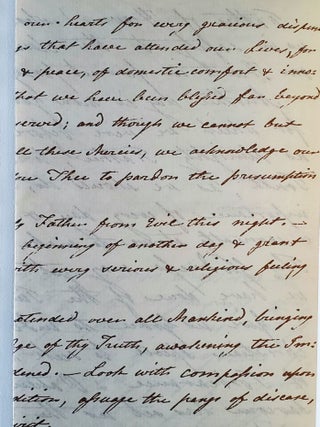 our hearts for every gracious dispen
gs that have attended our Lives, for
& peace, of domestic comfort & inno=
that we have been blessed far beyond
served; and though we cannot but
all these Mercies, we acknowledge our
Thee to pardon the presumption
Father from Evil this night. —
beginning of another day & grant
ith every serious & religious feeling
xtended over all Mankind, bringing
ge of thy Truth, awakening the Im=
dened. — Look with compassion upon
dition, assuage the pangs of disease,
irit